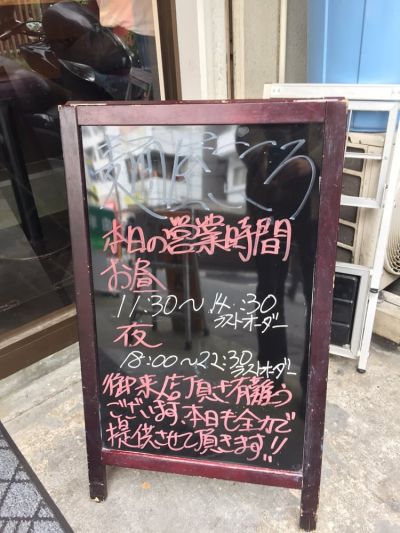 麺処ところ
本日の営業時間
お昼
11:30～14:30
ラストオーダー
夜
18:00～22:30
ラストオーダー
御来店頂き有難う
ございます。本日も全力で
提供させて頂きます!!